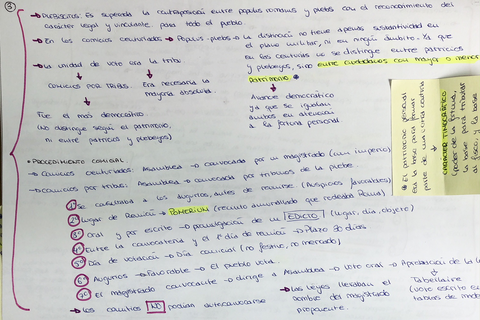 ③
→ PLEBISCITOS: Es superada la contraposición entre populus romanus y plebs con el reconocimiento del
carácter legal y vinculante para todo el pueblo.
→ En los comicios centuriados → Populus-plebs → La distinción no tiene apenas sustantividad en
el plano militar, ni en ningún ámbito. Ya que
en las centurias no se distingue entre patricios
y plebeyos, sino entre ciudadanos con mayor o menor
patrimonio.
→ La unidad de voto era la tribu
COMICIOS POR TRIBUS. Era necesaria la
mayoría absoluta.
Avance democrático
ya que se igualan
ambos en atención
a la fortuna personal
Fue el más democrático.
(No distingue según el patrimonio,
ni entre patricios y plebeyos)
* El patrimonio personal
era la base para formar
parte de una u otra centuria
CARÁCTER TIMOCRÁTICO
(poder de la fortuna,
era la base para tributar
al fisco, y la base
• PROCEDIMIENTO COMICIAL
→ Comicios centuriados: Asamblea → convocada por un magistrado (cum imperio)
→ Comicios por tribus: Asamblea → convocada por tribunos de la plebe.
1º Se consultaba a los augurios, antes de reunirse (Auspicios favorables)
2º Lugar de Reunión → POMERIUM (recinto amurallado que rodeaba Roma)
3º Oral y por escrito → promulgación de un EDICTO (lugar, día, objeto)
4º Entre la convocatoria y el 1er día de reunión → Plazo 30 días
5º Día de votación → Día comicial (no festivo, ni mercado)
6º Augurios → Favorable → El pueblo vota.
7º El magistrado convocante → dirige a Asamblea → voto oral → Aprobación de la
→ Los comitios NO podían autoconvocarse
→ Las leyes llevaban el
nombre del magistrado
proponente.
Tabellaire
(voto escrito en
tablas de